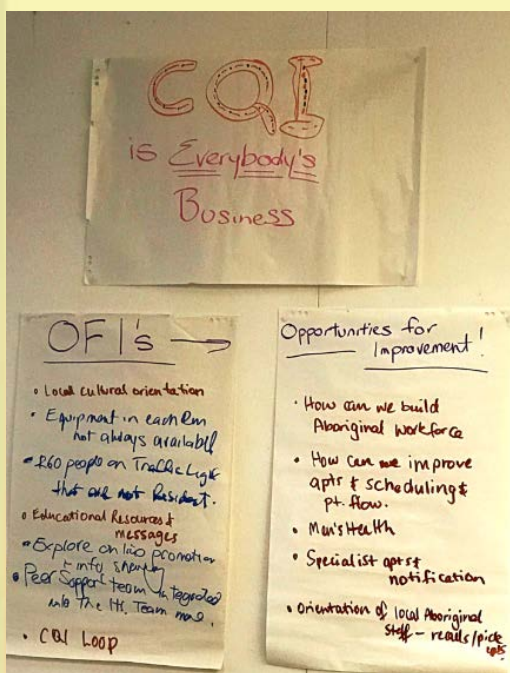 CQI
is Everybody's
Business
OFI's →
• Local cultural orientation
• Equipment in each Rm
not always availabl
• 260 people on Traffic Light
that are not Resident.
• Educational Resources &
messages
• Explore on promotion
+ info sharing
• Peer Support team integrated
into the Hth Team more.
• CQI Loop
Opportunities for
Improvement!
• How can we build
Aboriginal Workforce
• How can we improve
apts & scheduling &
pt. flow.
• Men's Health
• Specialist apts &
notification
• Orientation of local Aboriginal
Staff – recalls/pick
ups